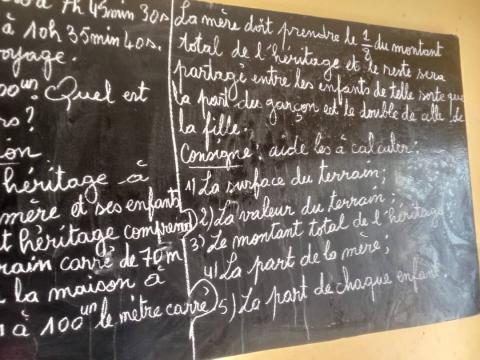 à 7h 45min 30s
à 10h 35min 40s.
voyage.
Quel est
?
héritage à
mère et ses enfants
t héritage comprend
rain carré de 70m
la maison à
à 100un le mètre carré
La mère doit prendre le 1/8 du montant
total de l'héritage et le reste sera
partagé entre les enfants de telle sorte que
la part du garçon est le double de celle de
la fille.
Consigne: aide les à calculer:
1) La surface du terrain;
2) La valeur du terrain;
3) Le montant total de l'héritage
4) La part de la mère;
5) La part de chaque enfant.